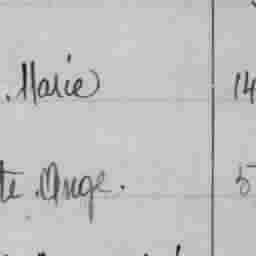 . Marie 14
te Ange. 5